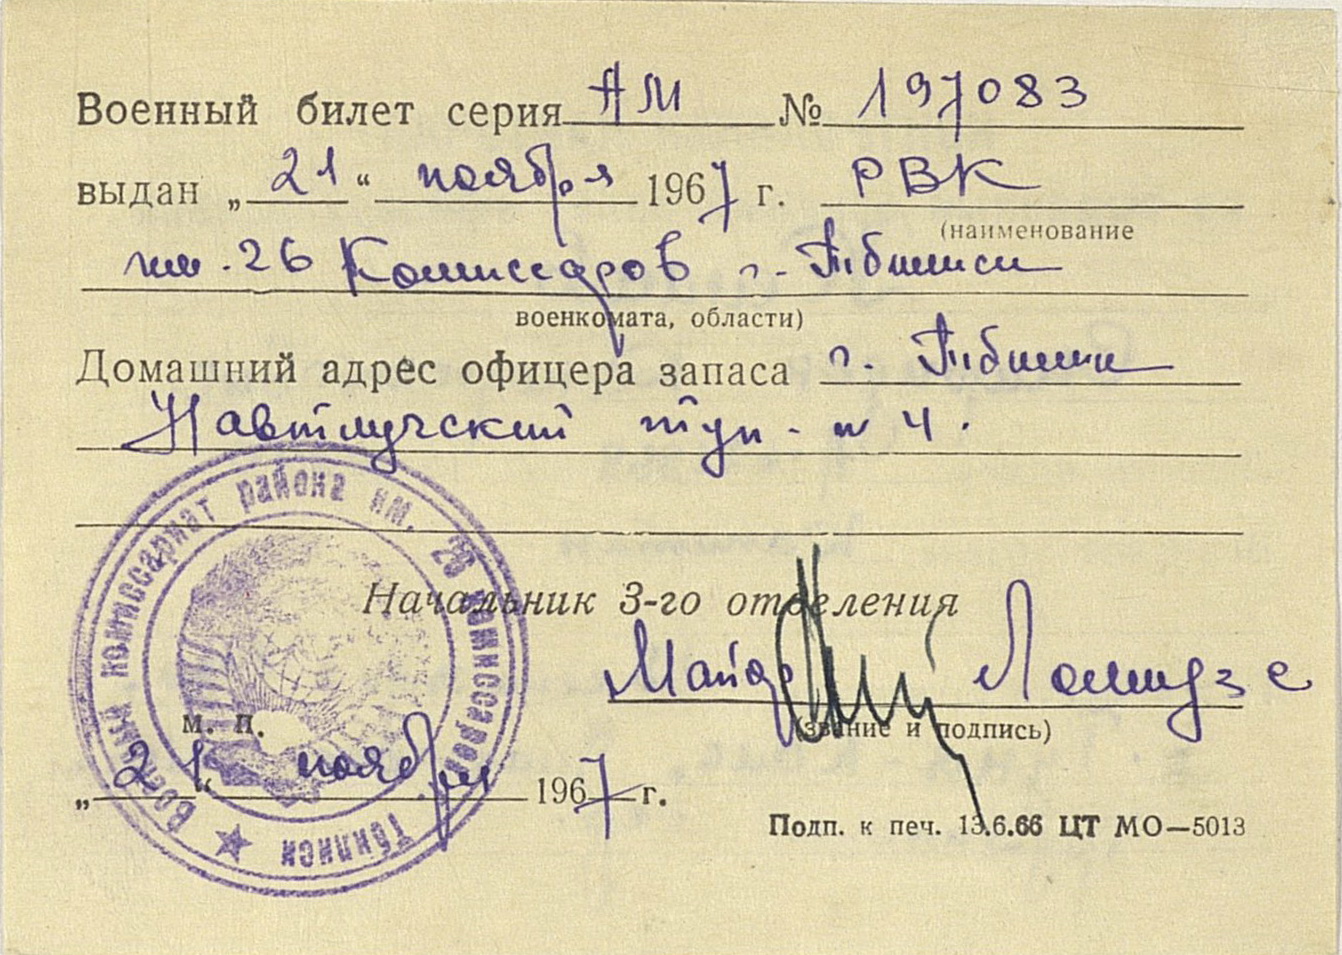 Военный билет серия АМ № 197083
выдан „21“ ноября 1967 г. РВК
(наименование
им. 26 Комиссаров г. Тбилиси
военкомата, области)
Домашний адрес офицера запаса г. Тбилиси
Навтлугский туп. № 4.
Военный комиссариат района им. 26 комиссаров г. Тбилиси
Начальник 3-го отделения
Майор Ломидзе
(звание и подпись)
м. п.
„21“ ноября 1967 г.
Подп. к печ. 13.6.66 ЦТ МО—5013